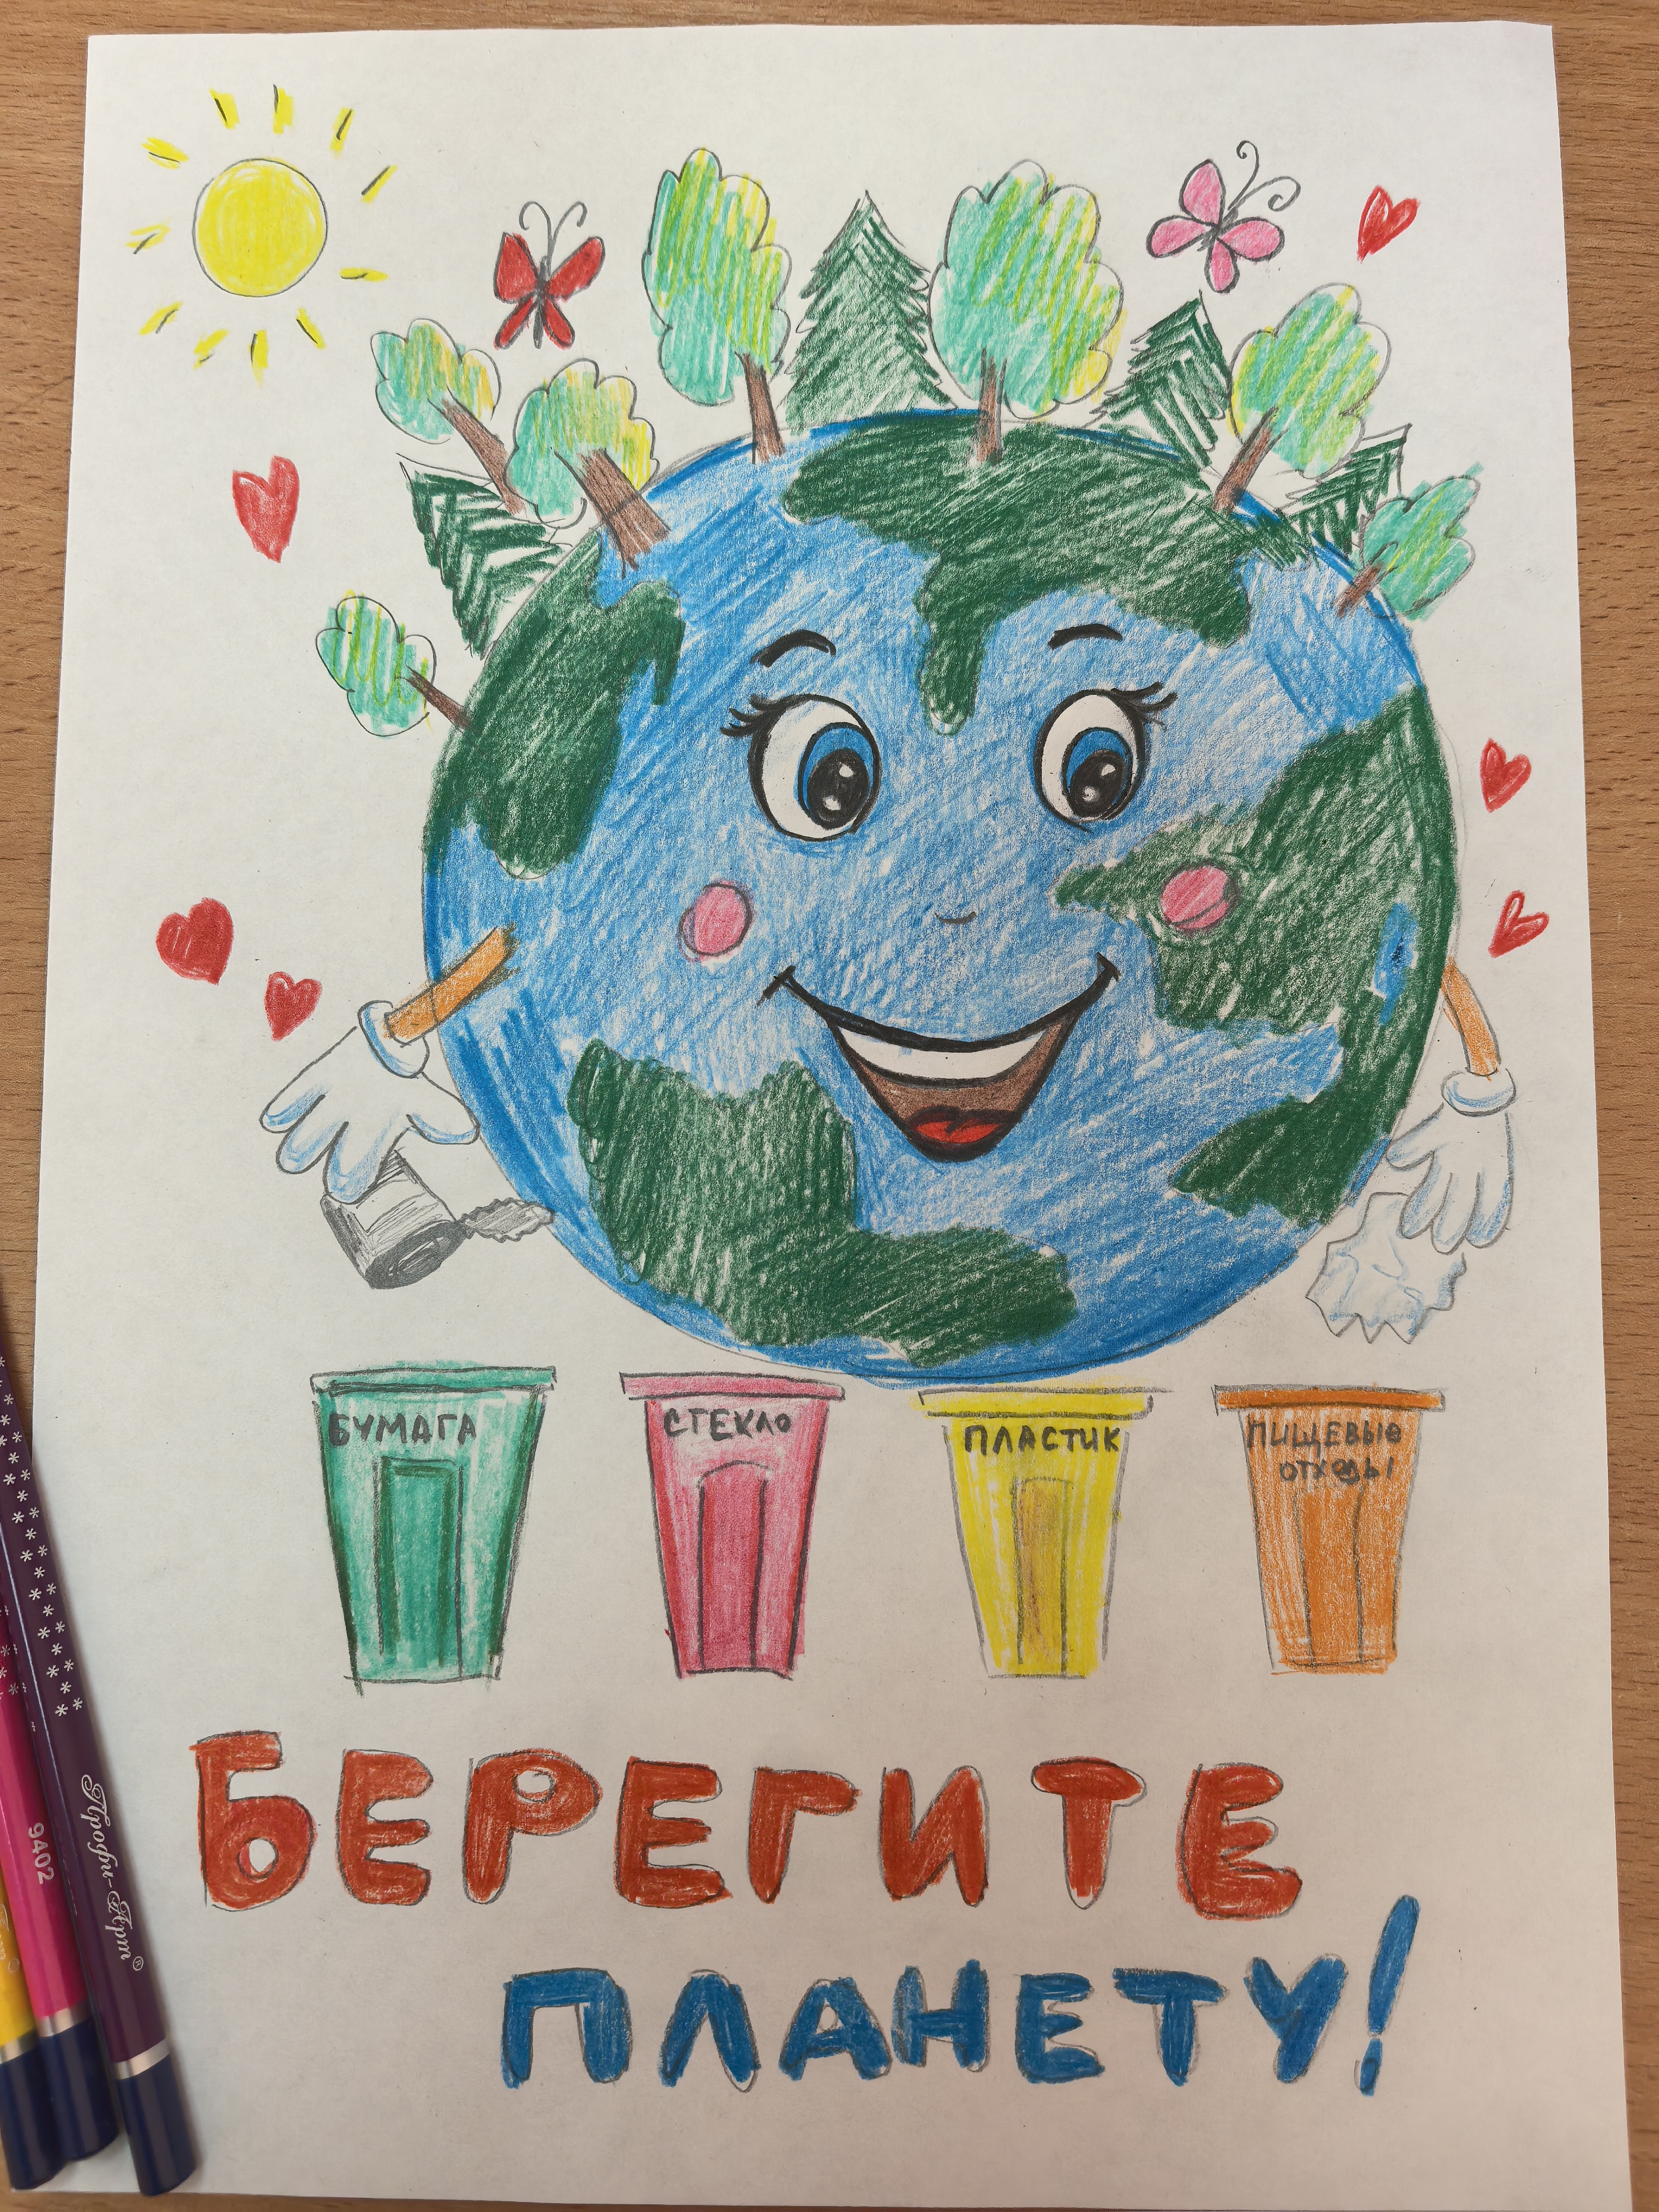 БУМАГА
СТЕКЛО
ПЛАСТИК
ПИЩЕВЫЕ
ОТХОДЫ
БЕРЕГИТЕ
ПЛАНЕТУ!
9402
Профи-Арт®